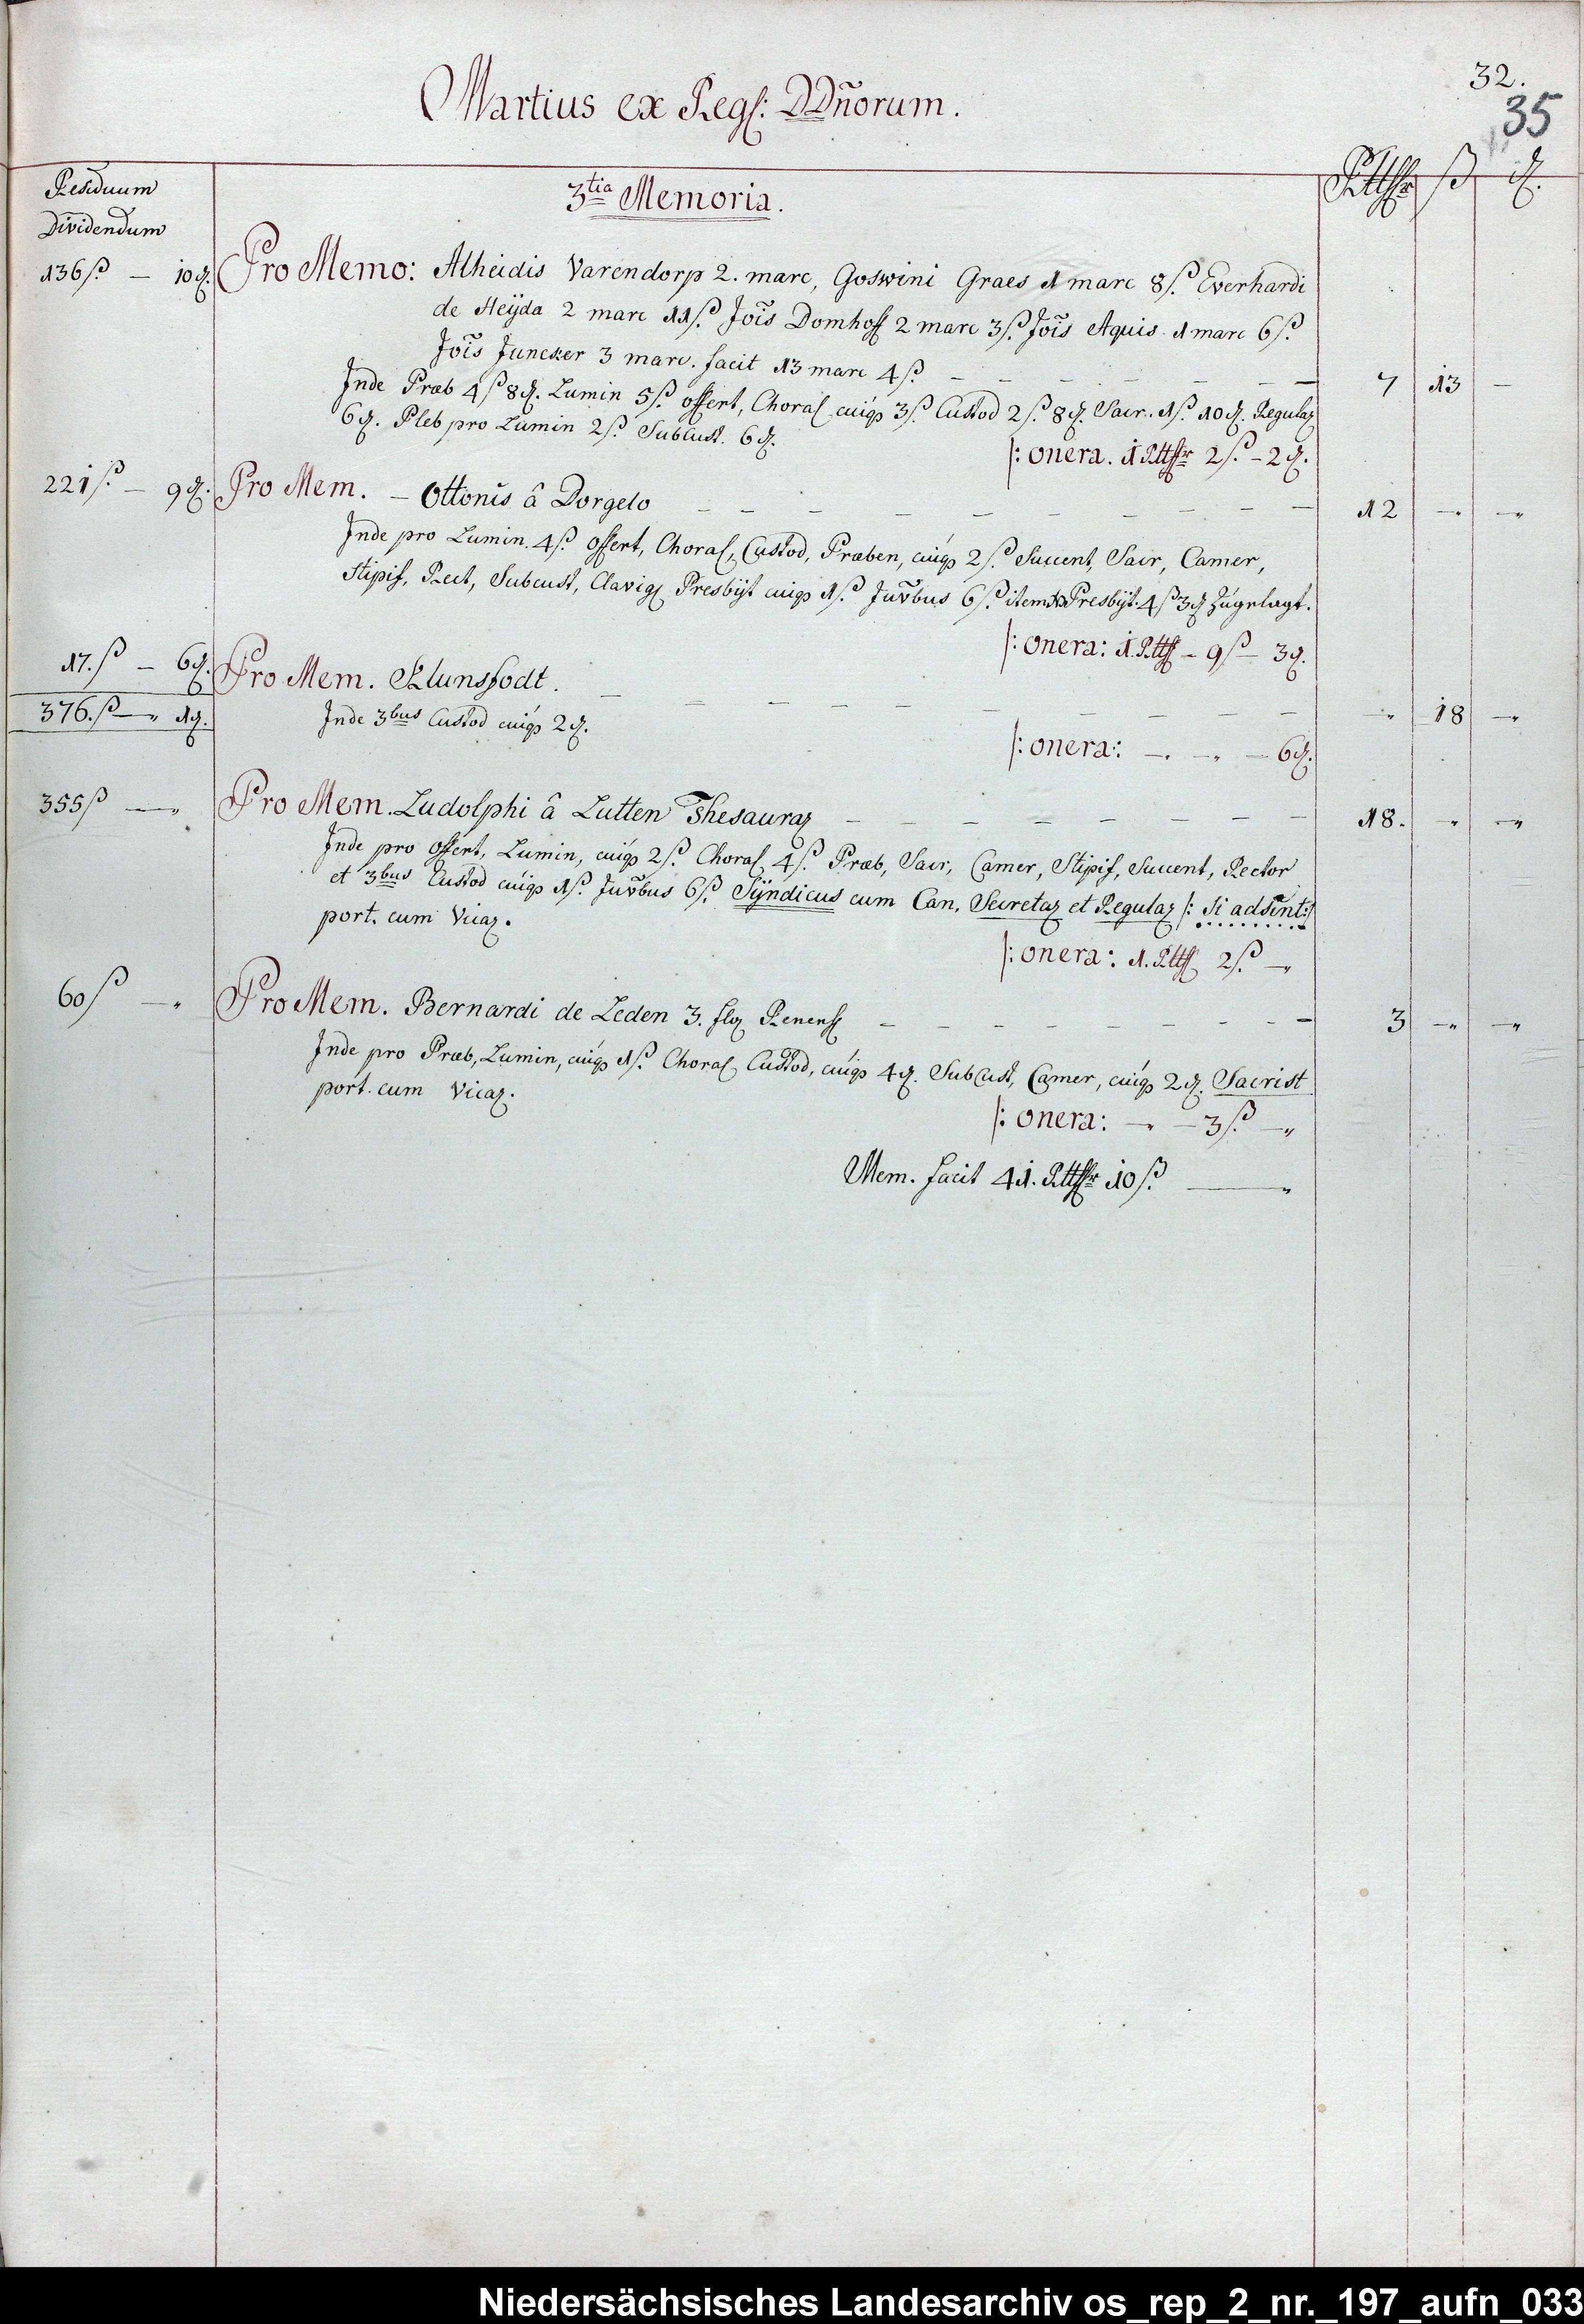 32.
35
Martius ex Regs: DDñorum.
Residuum
Dividendum
3tia Memoria.
Rtthlr ß ₰.
136ß. — 10₰. Pro Memo: Alheidis Varendorp 2. marc, Goswini Graes 1 marc 8ß. Everhardi
de Heÿda 2 marc 11ß. Jois̃ Domhoff 2 marc 3ß. Jois̃ Aquis 1 marc 6ß.
Jois̃ Juncker 3 marc. facit 13 marc 4ß. — 7 13 —
Inde Præb 4ß 8₰. Lumin 5ß. offert, Choral, cuiqs 3ß. Custod 2ß. 8₰. Sacr. 1ß. 10₰. Regular
6₰. Pleb pro Lumin 2ß. Subcust. 6₰.
/: onera. 1 Rtthlr 2ß. - 2₰.
221ß. — 9₰. Pro Mem. — Ottonis â Dorgelo — 12 — —
Inde pro Lumin. 4ß. offert, Choral, Custod, Præben, cuiqs 2ß. Succent, Sacr, Camer,
Stipif, Rect, Subcust, Clavig Presbÿt cuiqs 1ß. Juv̄bus 6ß. item Presbÿt. 4ß 3₰ zugelagt.
/: onera: 1 Rtth - 9ß — 3₰.
17.ß — 6₰. Pro Mem. Klunsfodt. — „ 18 —
376.ß — 1₰. Inde 3bus Custod cuiqs 2₰.
/: onera: — — — 6₰.
355ß — Pro Mem. Ludolphi â Lutten Thesaurar — 18. — —
Inde pro offert, Lumin, cuiqs 2ß. Choral, 4ß. Præb, Sacr, Camer, Stipif, Succent, Rector
et 3bus Custod cuiqs 1ß. Juv̄bus 6ß. Sÿndicus cum Can, Secretar et Regular /: Si adsint:/
port. cum Vicar.
/: onera: 1. Rtth 2ß. —
60ß — Pro Mem. Bernardi de Leden 3. flor Renens — 3 — —
Inde pro Præb, Lumin, cuiqs 1ß. Choral, Custod, cuiqs 4₰. SubCust, Camer, cuiqs 2₰. Sacrist
port. cum Vicar.
/: onera: — — 3ß. —
Mem. facit 41. Rtthlr 10ß. —
Niedersächsisches Landesarchiv os_rep_2_nr._197_aufn_033